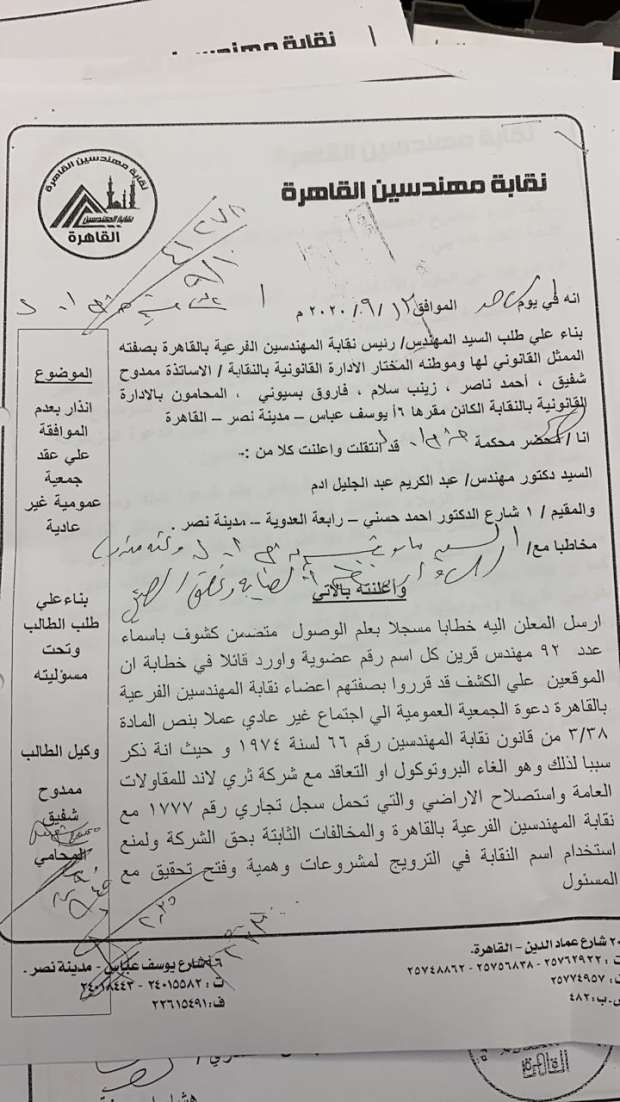 نقابة مهندسين
نقابة مهندسين القاهرة
نقابة المهندسين
القاهرة
نقابة مهندسين القاهرة
٤١٢٧٨
٩/١٠
انه في يوم الموافق ١٢/ ٩/ ٢٠٢٠ م
بناء علي طلب السيد المهندس/ رئيس نقابة المهندسين الفرعية بالقاهرة بصفته
الممثل القانوني لها وموطنه المختار الأدارة القانونية بالنقابة / الاساتذة ممدوح
شفيق ، أحمد ناصر ، زينب سلام ، فاروق بسيوني ، المحامون بالادارة
القانونية بالنقابة الكائن مقرها ٦أ يوسف عباس – مدينة نصر – القاهرة
انا / محضر محكمة قد انتقلت واعلنت كلا من :-
السيد دكتور مهندس/ عبد الكريم عبد الجليل ادم
والمقيم / ١ شارع الدكتور احمد حسني – رابعة العدوية – مدينة نصر .
مخاطبا مع/
وأعلنته بالاتي
ارسل المعلن اليه خطابا مسجلا بعلم الوصول متضمن كشوف باسماء
عدد ٩٢ مهندس قرين كل اسم رقم عضوية واورد قائلا في خطابة ان
الموقعين علي الكشف قد قرروا بصفتهم اعضاء نقابة المهندسين الفرعية
بالقاهرة دعوة الجمعية العمومية الي اجتماع غير عادي عملا بنص المادة
٣/٣٨ من قانون نقابة المهندسين رقم ٦٦ لسنة ١٩٧٤ و حيث انة ذكر
سببا لذلك وهو الغاء البروتوكول او التعاقد مع شركة ثري لاند للمقاولات
العامة واستصلاح الاراضي والتي تحمل سجل تجاري رقم ١٧٧٧ مع
نقابة المهندسين الفرعية بالقاهرة والمخالفات الثابتة بحق الشركة ولمنع
استخدام اسم النقابة في الترويج لمشروعات وهمية وفتح تحقيق مع
المسئول
الموضوع
انذار بعدم
الموافقة
علي عقد
جمعية
عمومية غير
عادية
بناء علي
طلب الطالب
وتحت
مسؤليته
وكيل الطالب
ممدوح
شفيق
المحامي
شارع عماد الدين – القاهرة.
ت : ٢٥٧٦٢٩٢٢ - ٢٥٧٥٦٨٣٨ - ٢٥٧٤٨٨٦٢
٢٥٧٧٤٩٥٧
ص.ب: ٤٨٢
شارع يوسف عباس – مدينة نصر.
ت : ٢٤٠١٥٥٨٢ - ٢٤٠١٨٤٤٣
ف: ٢٢٦١٥٤٩١